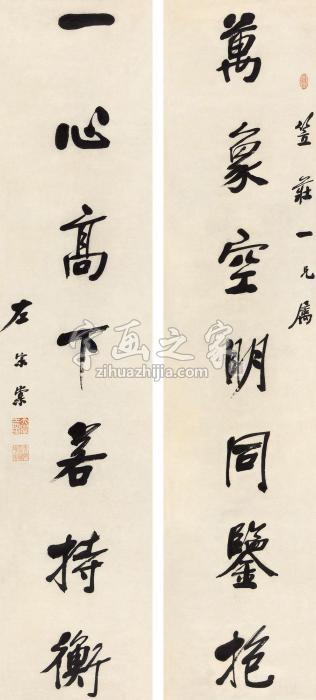 笠莊一兄屬
萬象空明同鑒抱
一心高下若持衡
左宗棠
字画之家
zihuazhijia.com